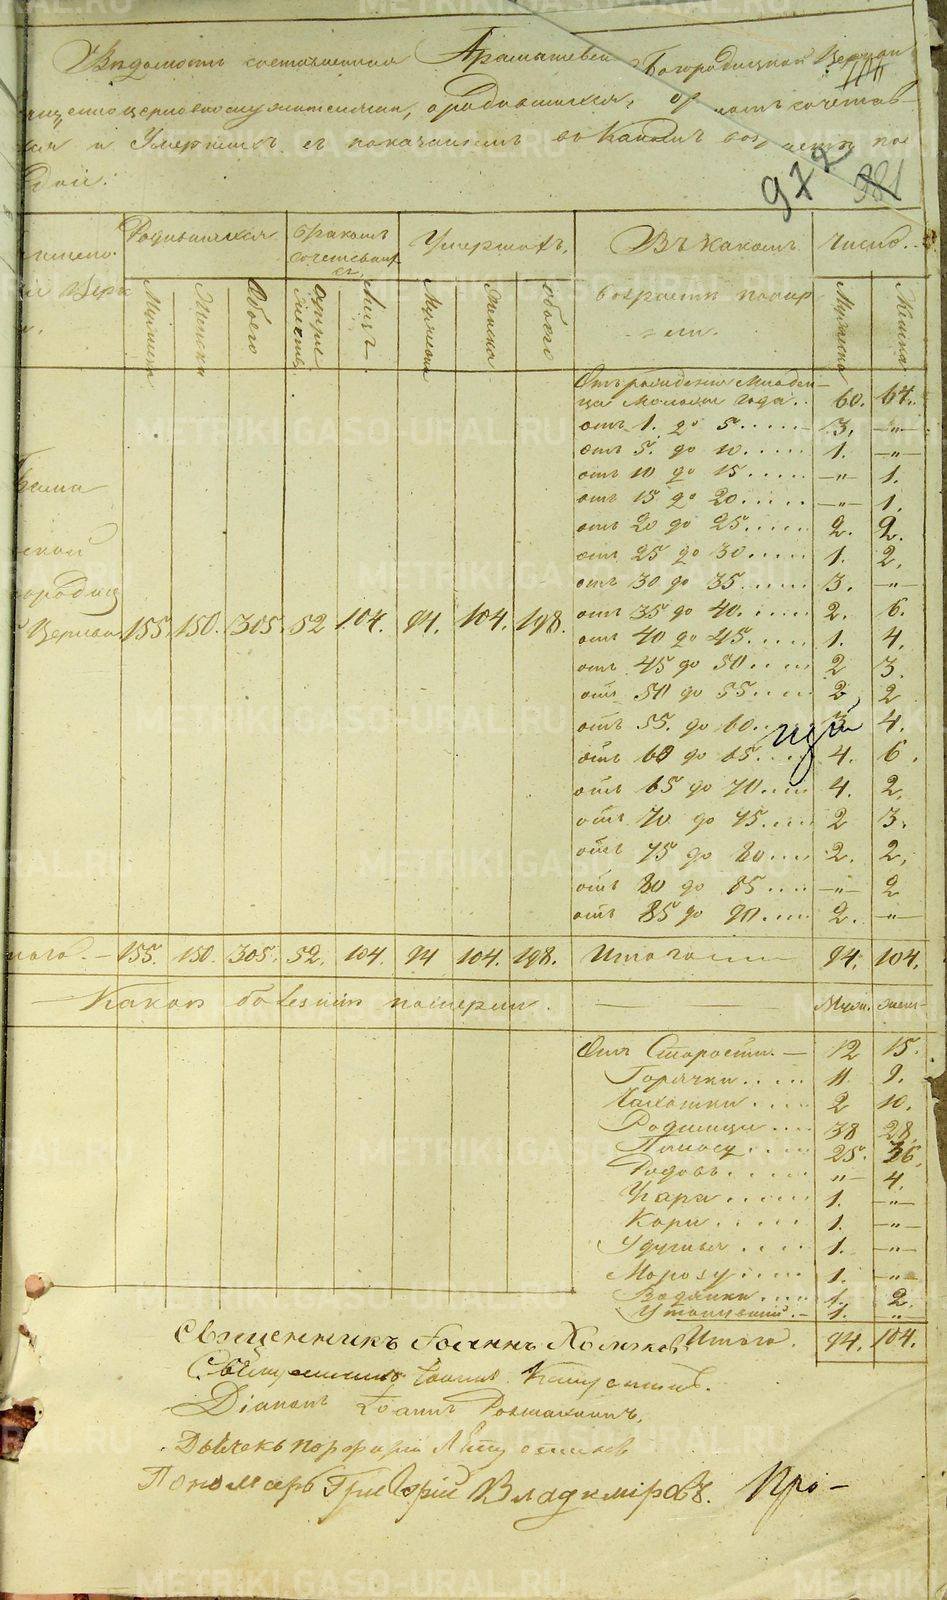 Ведомость составленная Арамашевской Богородицкой Церкви
и Умершихъ съ показаніемъ въ какихъ
977 981
Родившихся
бракомъ сочетавшихся
Умершихъ
Въ какомъ
число
возрасте померли
Мужеска
Женска
Обоего
Лицъ
Мужеска
Женска
обоего
Мужеска
Женска
Отъ рожденія Младенца Моложе года .. 60. 64.
отъ 1. до 5 ..... 3. —"—
отъ 5. до 10 ..... 1. —"—
отъ 10 до 15 ..... —"— 1.
отъ 15 до 20 ..... —"— 1.
отъ 20 до 25 ..... 2. 2.
отъ 25 до 30 ..... 1. 2.
отъ 30 до 35 ..... 3. —"—
отъ 35 до 40. ..... 2. 6.
Церкви 155. 150. 305. 52 104. 94. 104. 198.
отъ 40 до 45 ..... 1. 4.
отъ 45 до 50 ..... 2 3.
отъ 50 до 55 ..... 2 2
отъ 55. до 60. ... 3 4.
отъ 60 до 65 ..... 4. 6.
отъ 65 до 70 ..... 4. 2.
отъ 70 до 75 ..... 2 3.
отъ 75 до 80 ..... 2. 2.
отъ 80 до 85 ..... —"— 2
отъ 85 до 90 ..... 2. —"—
155. 150. 305. 52. 104. 94 104. 198. Итого 94. 104.
Какою болезнію померли. Муж. женс.
Отъ Старости. — 12 15.
Горячки ..... 11 9.
Чахотки ..... 2 10.
Родимцу .... 38 28.
Поносу ..... 25. 36.
Родовъ ..... " 4.
Жара ..... 1. —"—
Кори ..... 1. —"—
Удушья .... 1. —"—
Морозу ..... 1. —"—
Водянки .... 1. 2.
1. "
Итого. 94. 104.
Священникъ Іоаннъ Хомяковъ
Священникъ Іоаннъ
Діаконъ Іоаннъ
Дьячекъ Порфирій
Пономарь Григорій Владиміровъ. Про—
METRIKI.GASO-URAL.RU